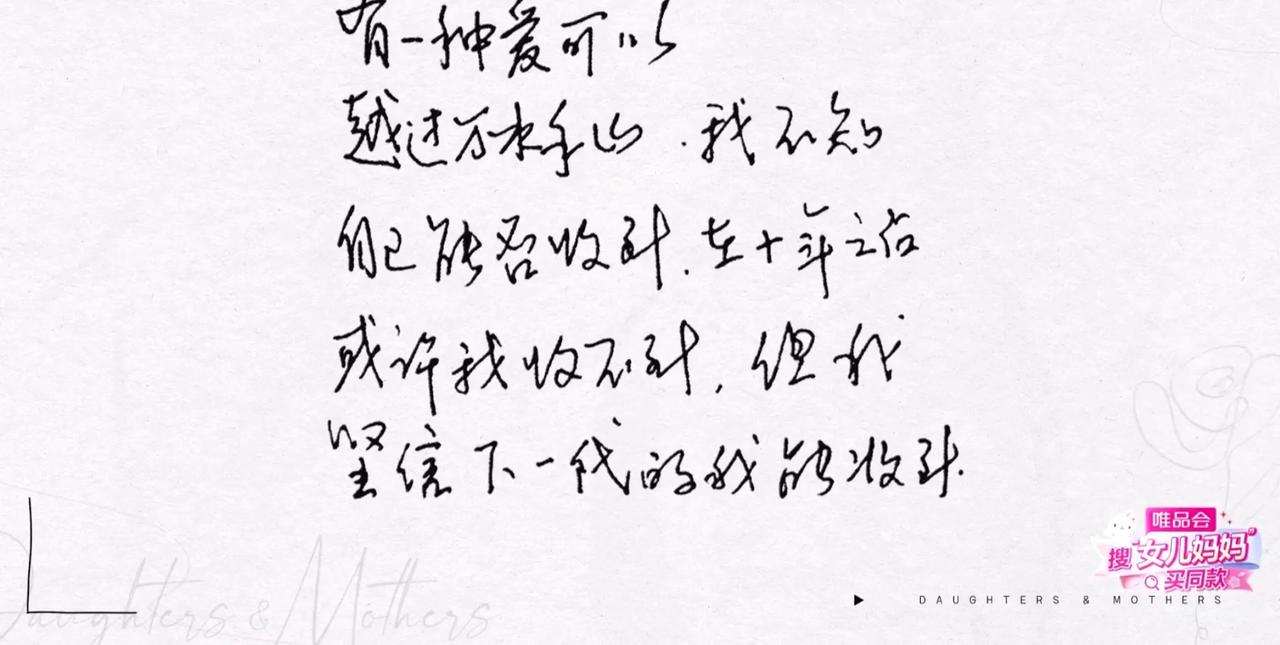 有一种爱可以
越过万水千山.我不知
自己能否收到.在十年之后
或许我收不到,但我
坚信下一代的我能收到.
唯品会
搜"女儿妈妈"
买同款
Daughters & Mothers
DAUGHTERS & MOTHERS